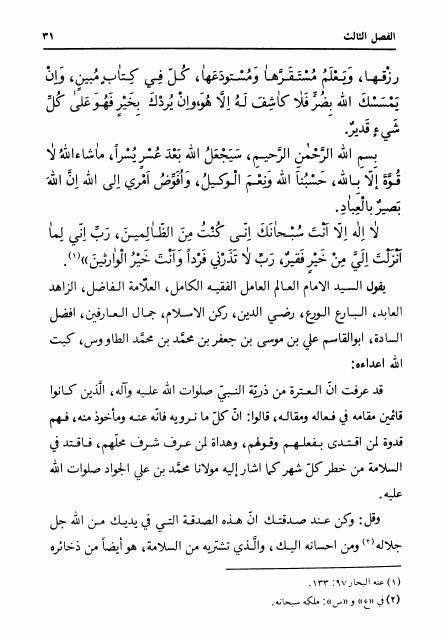 الفصل الثالث ٣١
رزقها، وَيَعْلَمُ مُسْتَقَرَّها وَمُسْتودَعَها، كُلّ فِي كِتابٍ مُبينٍ، وَإِنْ
يَمْسَسْكَ الله بِضُرٍّ فَلا كاشِفَ لَهُ إِلَّا هُوَ، وَإِنْ يُرِدْكَ بِخَيْرٍ فَهُوَ عَلىٰ كُلِّ
شَيءٍ قَديرٌ.
بِسمِ اللهِ الرَّحْمٰنِ الرَّحيمِ، سَيَجْعَلُ الله بَعْدَ عُسْرٍ يُسْراً، ماشاءَ اللهُ لا
قُوَّةَ إِلّا بِالله، حَسْبُنَا الله وَنِعْمَ الْوَكيلُ، وَأُفَوِّضُ أَمْري اِلى الله اِنَّ اللهَ
بَصيرٌ بِالْعِبادِ.
لا اِلٰه اِلّا اَنْتَ سُبْحانَكَ اِنّى كُنْتُ مِنَ الظّالِمينَ، رَبِّ اِنّي لِما
اَنْزَلْتَ اِلَيَّ مِنْ خَيْرٍ فَقيرٌ، رَبِّ لا تَذَرْني فَرْداً وَاَنْتَ خَيْرُ الْوارِثينَ»(١).
يقول السيد الامام العالم العامل الفقيه الكامل، العلّامة الفاضل، الزاهد
العابد، البارع الورع، رضي الدين، ركن الاسلام، جمال العارفين، افضل
السادة، ابوالقاسم علي بن موسى بن جعفر بن محمد بن محمد الطاووس، كبت
الله اعداءه:
قد عرفت انّ العترة من ذريّة النبيّ صلوات الله عليه وآله، الّذين كانوا
قائمين مقامه في فعاله ومقاله، قالوا: انّ كلّ ما نرويه فانّه عنه ومأخوذ منه، فهم
قدوة لمن اقتدى بفعلهم وقولهم، وهداة لمن عرف شرف محلّهم، فاقتد في
السلامة من خطر كلّ شهر كما اشار إليه مولانا محمّد بن علي الجواد صلوات الله
عليه.
وقل: وكن عند صدقتك انّ هذه الصدقة التي في يديك من الله جل
جلاله(٢) ومن احسانه اليك، والّذي تشتريه من السلامة، هو أيضاً من ذخائره
(١) عنه البحار ٩٧: ١٣٣.
(٢) في «ع» و «س»: ملكه سبحانه.